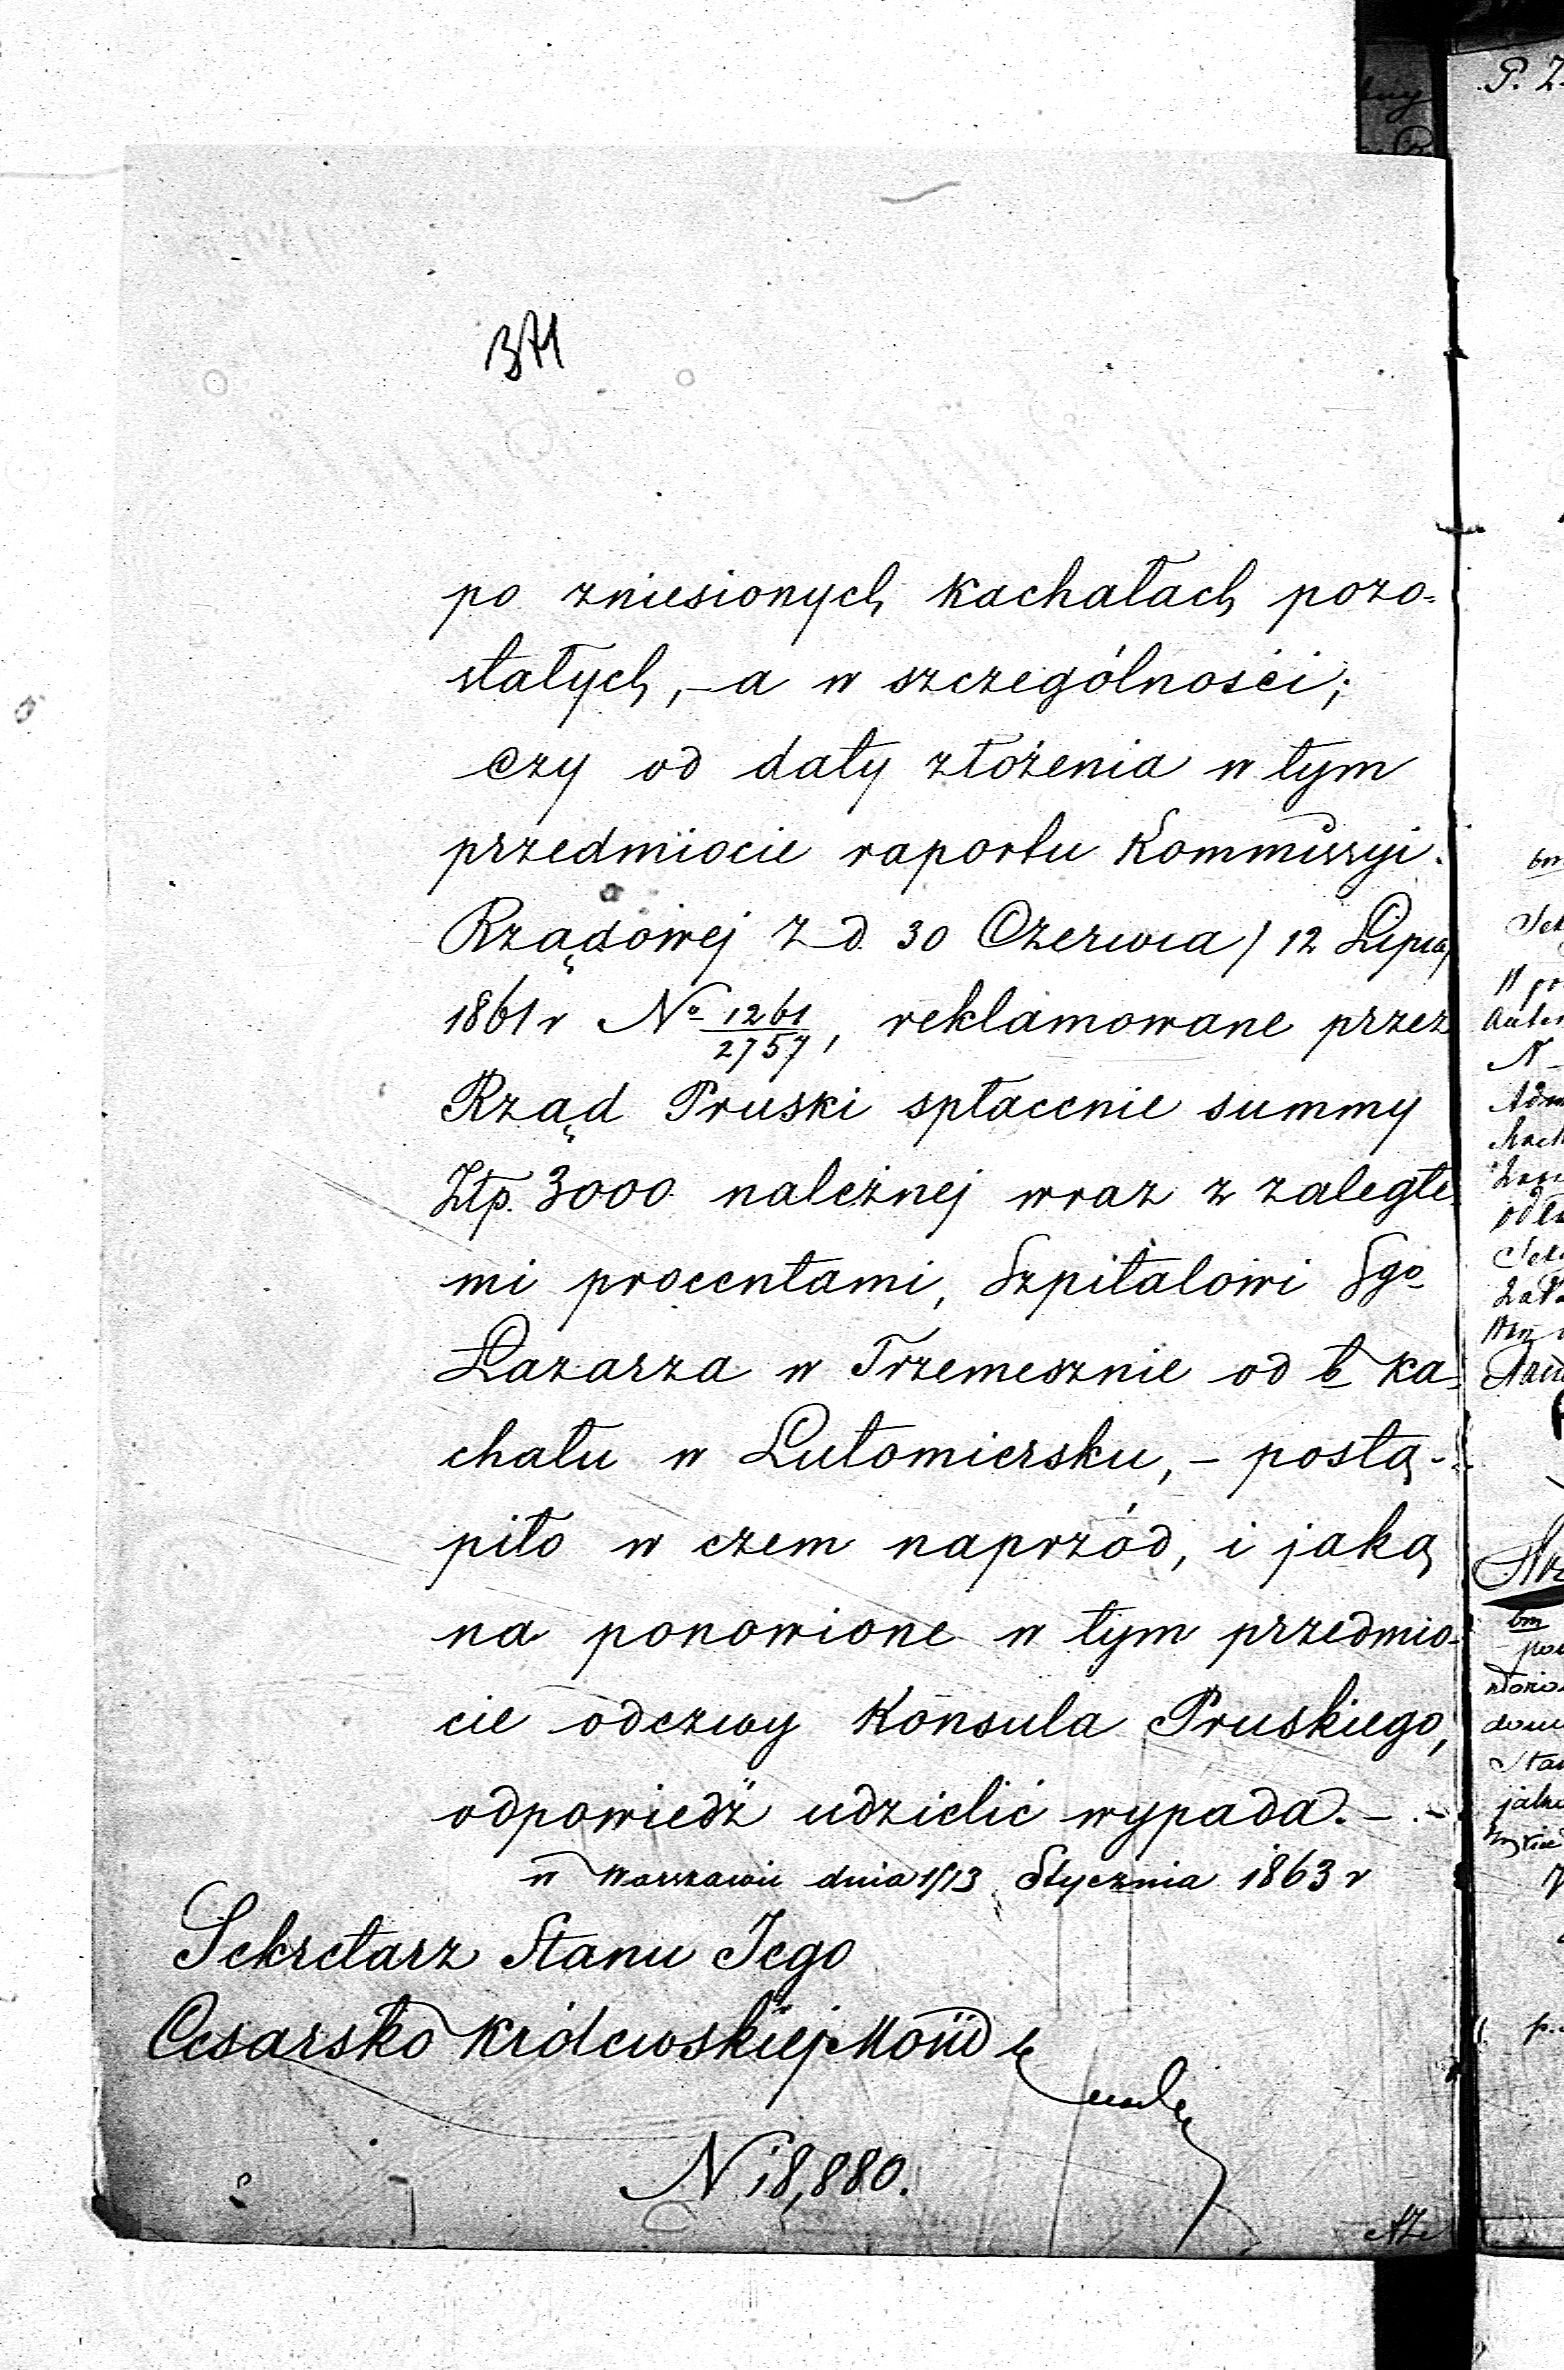 371
po zniesionych kachałach pozo-
stałych, - a w szczególności;
czy od daty złożenia w tym
przedmiocie raportu Kommissyi
Rządowej z d. 30 Czerwca / 12 Lipca
1861 r No 1261/2757, reklamowane przez
Rząd Pruski spłacenie summy
Złp. 3000 należnej wraz z zaległe-
mi procentami, Szpitalowi Sgo
Łazarza w Trzemesznie od b ka-
chału w Lutomiersku, - postą-
piło w czem naprzód, i jaką
na ponowione w tym przedmio-
cie odezwy Konsula Pruskiego,
odpowiedź udzielić wypada. -
w Warszawie dnia 1/13 Stycznia 1863 r
Sekretarz Stanu Jego
Cesarsko Królewskiej Mości
N 18,880.